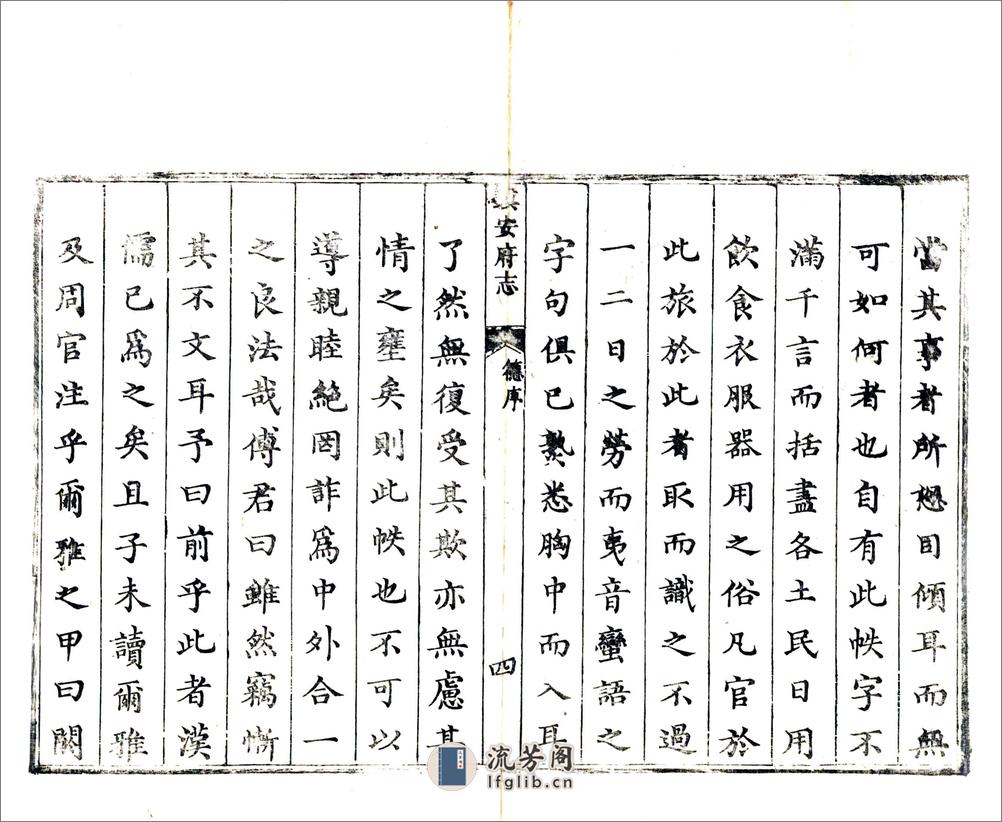 當其事者所怒目傾耳而無
可如何者也自有此帙字不
滿千言而括盡各土民日用
飲食衣服器用之俗凡官於
此旅於此者取而識之不過
一二日之勞而夷音蠻語之
字句俱已熟悉胸中而入耳
安府志
德序
四
了然無復受其欺亦無慮其
情之壅矣則此帙也不可以
導親睦絕罔詐爲中外合一
之良法哉傅君曰雖然竊慚
其不文耳予曰前乎此者漢
儒已爲之矣且子未讀爾雅
及周官注乎爾雅之甲曰闕
流芳阁
lfglib.cn